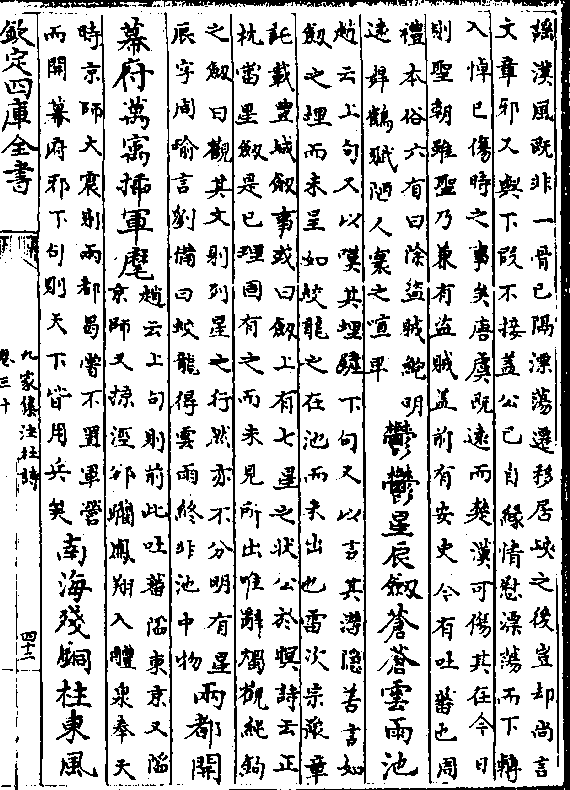 謡漢風既非一骨已隅漂蕩遷移居峽之後豈却尚言
文章邪又與下段不接盖公已自緣情慰漂蕩而下轉
入悼已傷時之事矣唐虞既遠而楚漢可傷其在今日
則聖朝雖聖乃兼有盜賊盖前有安史今有吐蕃也周
禮本俗六有曰除盜賊鮑明
遠舞鶴賦陋人寰之喧卑
鬱鬱星辰劔蒼蒼雲雨池
趙云上句又以嘆其埋鬱下句又以言其潜隐若言如
劔之埋而未呈如蛟龍之在池而未出也雷次宗豫章
記載豊城劔事或曰劔上有七星之狀公於暝詩云正
枕當星劔是已理固有之而未見所出唯辭燭觀純鈎
之劔曰觀其文則列星之行然亦不分明有星
辰字周瑜言劉備曰蛟龍得雲雨終非池中物
兩都開
幕府萬㝢插軍麾
趙云上句則前此吐蕃陷東京又陷
京師又掠涇邠躪鳳翔入醴泉奉天
時京師大震則兩都曷嘗不置軍營
而開幕府邪下句則天下皆用兵矣
南海殘銅柱東風
欽定四庫全書
九家集注杜詩
卷三十
四十二